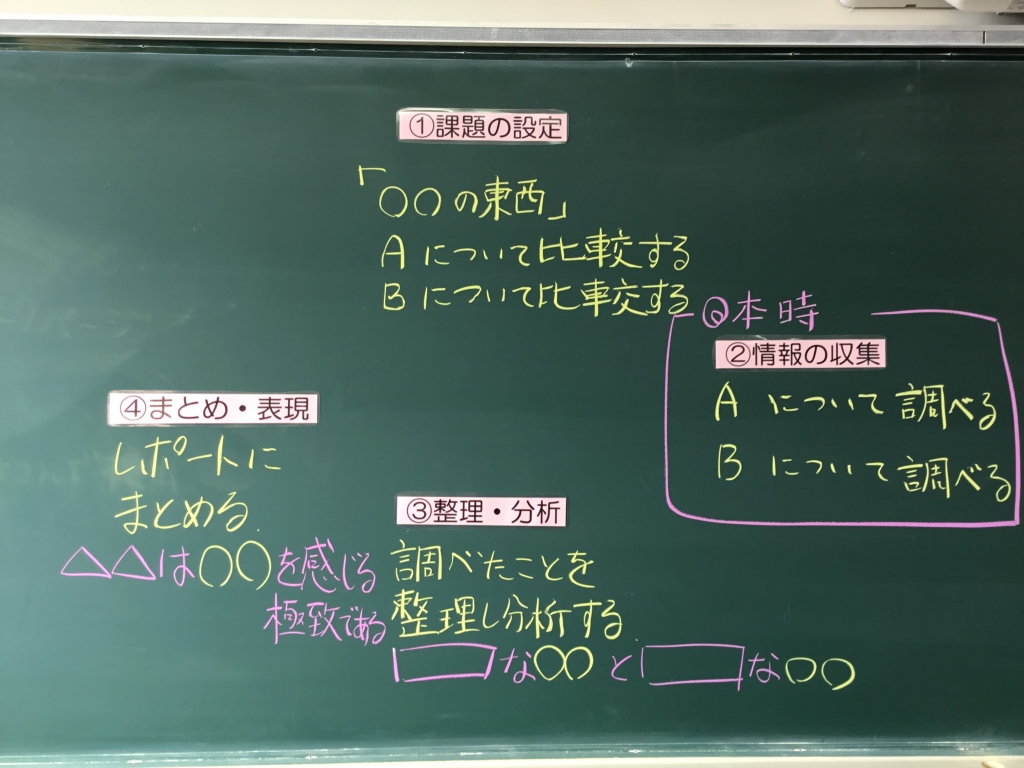 ①課題の設定
「〇〇の東西」
Aについて比較する
Bについて比較する
本時
②情報の収集
Aについて調べる
Bについて調べる
③整理・分析
調べたことを
整理し分析する
な〇〇とな〇〇
④まとめ・表現
レポートに
まとめる.
△△は〇〇を感じる
極致である